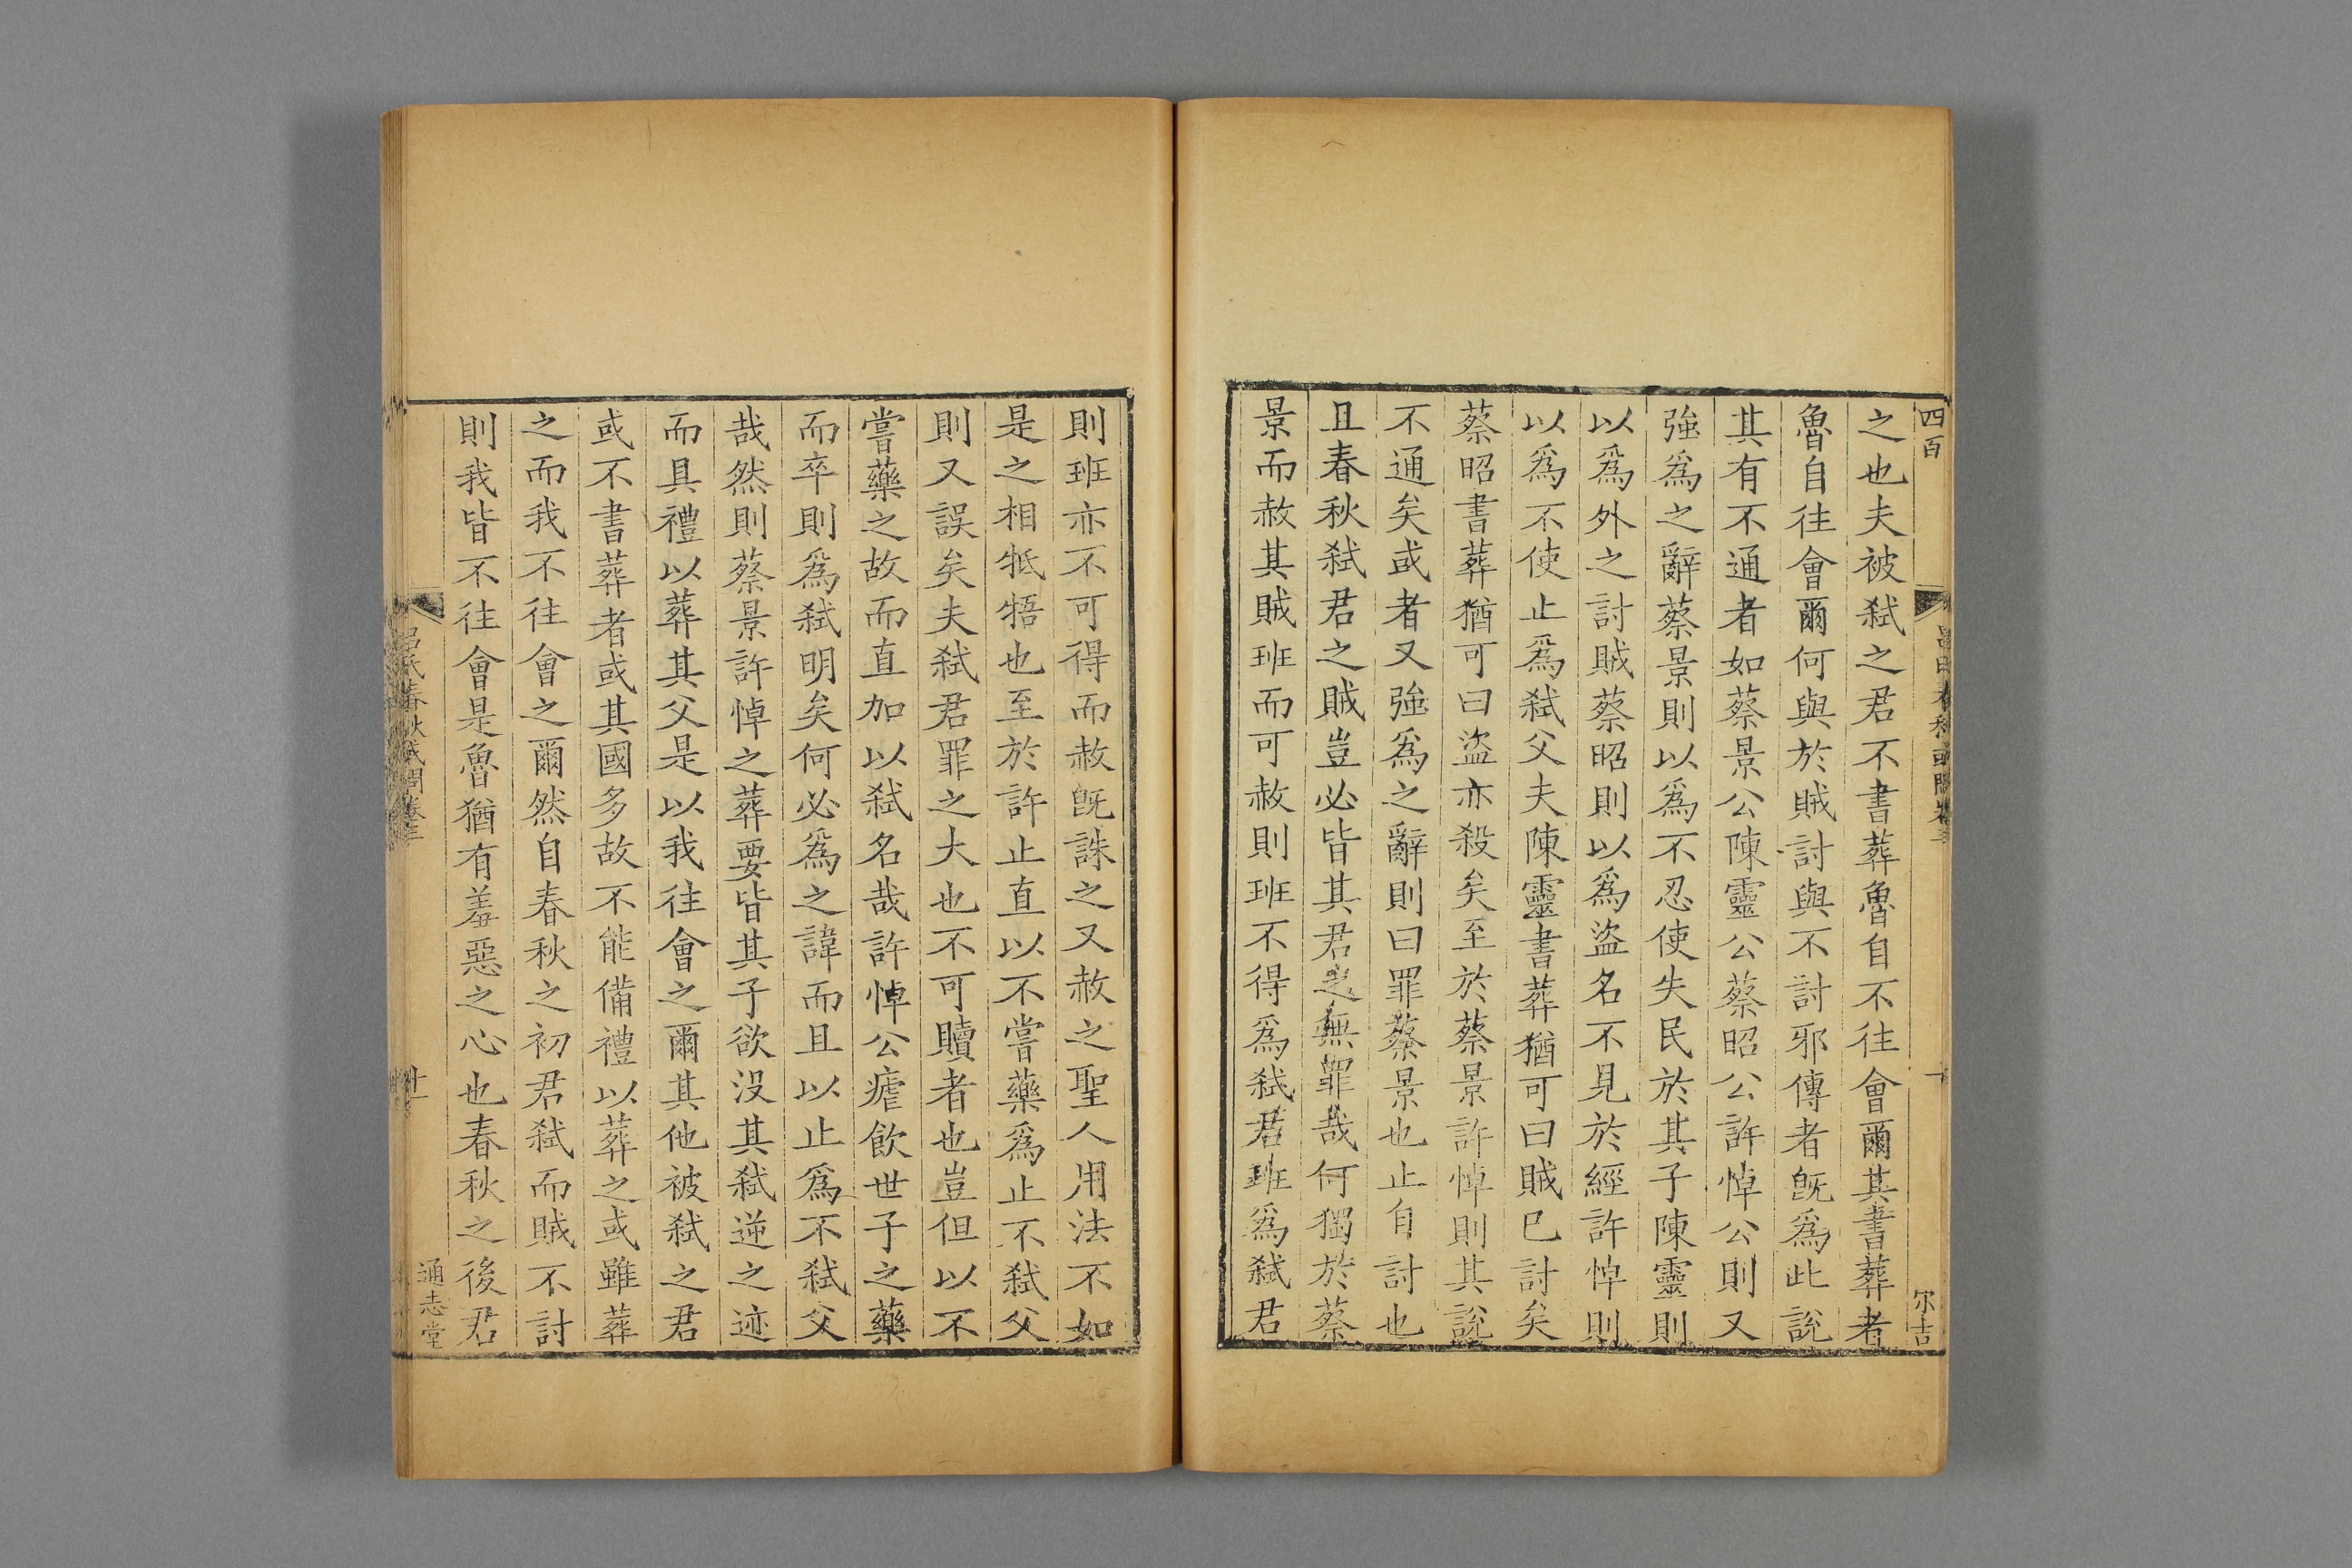 四百
之也夫被弑之君不書葬魯自不往會爾其書葬者
魯自往會爾何與於賊討與不討邪傳者旣爲此說
其有不通者如蔡景公陳靈公蔡昭公許悼公則又
強爲之辭蔡景則以爲不忍使失民於其子陳靈則
以爲外之討賊蔡昭則以爲盜名不見於經許悼則
以爲不使止爲弑父夫陳靈書葬猶可曰賊已討矣
蔡昭書葬猶可曰盜亦殺矣至於蔡景許悼則其說
不通矣或者又強爲之辭則曰罪蔡景也止自討也
且春秋弑君之賊豈必皆其君之無罪哉何獨於蔡
景而赦其賊班而可赦則班不得爲弑君班爲弑君
則班亦不可得而赦旣誅之又赦之聖人用法不如
是之相牴牾也至於許止直以不嘗藥爲止不弑父
則又誤矣夫弑君罪之大也不可贖者也豈但以不
嘗藥之故而直加以弑名哉許悼公瘧飲世子之藥
而卒則爲弑明矣何必爲之諱而且以止爲不弑父
哉然則蔡景許悼之葬要皆其子欲没其弑逆之迹
而具禮以葬其父是以我往會之爾其他被弑之君
或不書葬者或其國多故不能備禮以葬之或雖葬
之而我不往會之爾然自春秋之初君弑而賊不討
則我皆不往會是魯猶有羞惡之心也春秋之後君
呂氏春秋或問卷三
十一
通志堂